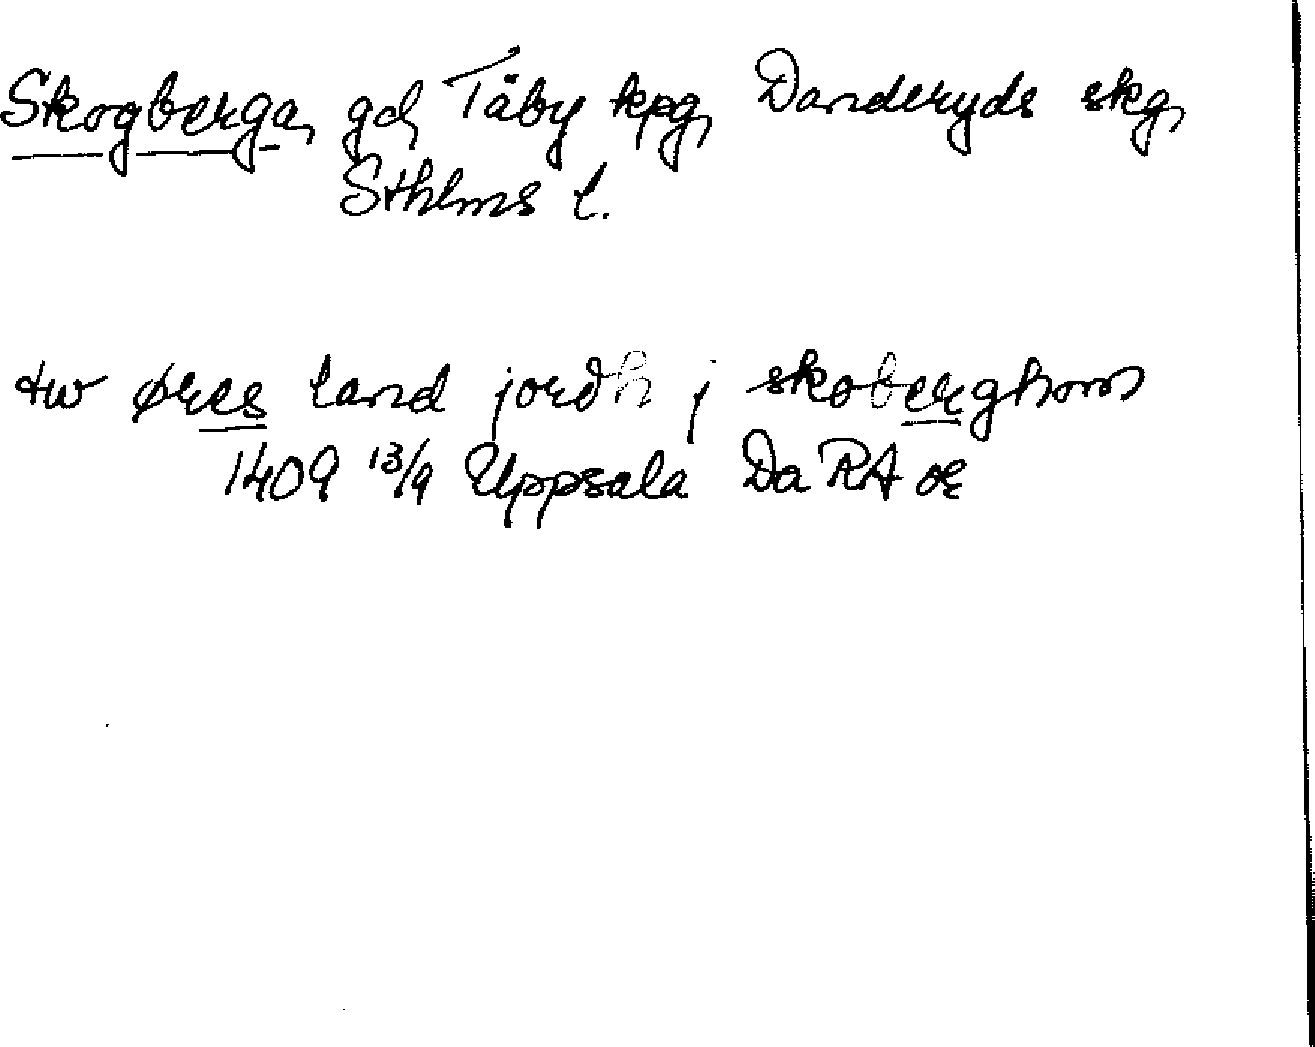 Skogberga, gd, Täby kpg, Danderyds skg,
Sthlms l.
tw øres land jordh j skoberghom
1409 13/9 Uppsala Da RA or